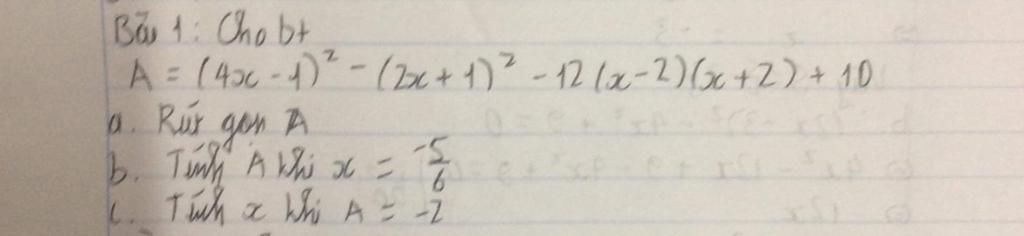 Bài 1: Cho bt
A = (4x - 1)² - (2x + 1)² - 12(x - 2)(x + 2) + 10
a. Rút gọn A
b. Tính A khi x = -5/6
c. Tính x khi A = -2